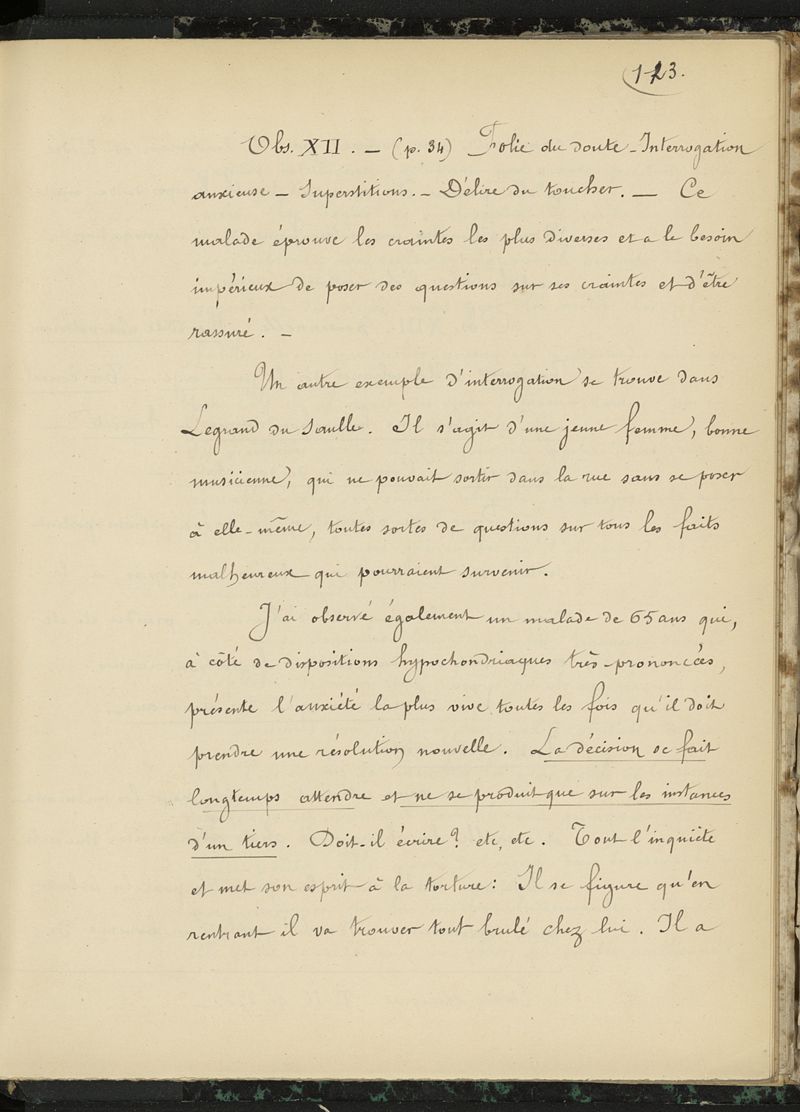 123.
Obs. XII. — (p. 34) Folie du doute - Interrogation
anxieuse — Superstitions. — Délire du toucher. — Ce
malade éprouve les craintes les plus diverses et a le besoin
impérieux de poser des questions sur ses craintes et d'être
rassuré. —
Un autre exemple d'interrogation se trouve dans
Legrand du Saulle. Il s'agit d'une jeune femme, bonne
musicienne, qui ne pouvait sortir dans la rue sans se poser
à elle-même, toutes sortes de questions sur tous les faits
malheureux qui pourraient survenir.
J'ai observé également un malade de 65 ans qui,
à côté de dispositions hypochondriaques très-prononcées,
présente l'anxiété la plus vive toutes les fois qu'il doit
prendre une résolution nouvelle. La décision se fait
longtemps attendre et ne se produit que sur les instances
d'un tiers. Doit-il écrire? etc, etc. Tout l'inquiète
et met son esprit à la torture: Il se figure qu'en
rentrant il va trouver tout brulé chez lui. Il a